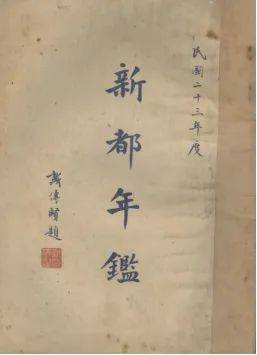 民國二十三年度
新都年鑑
戴傳賢題